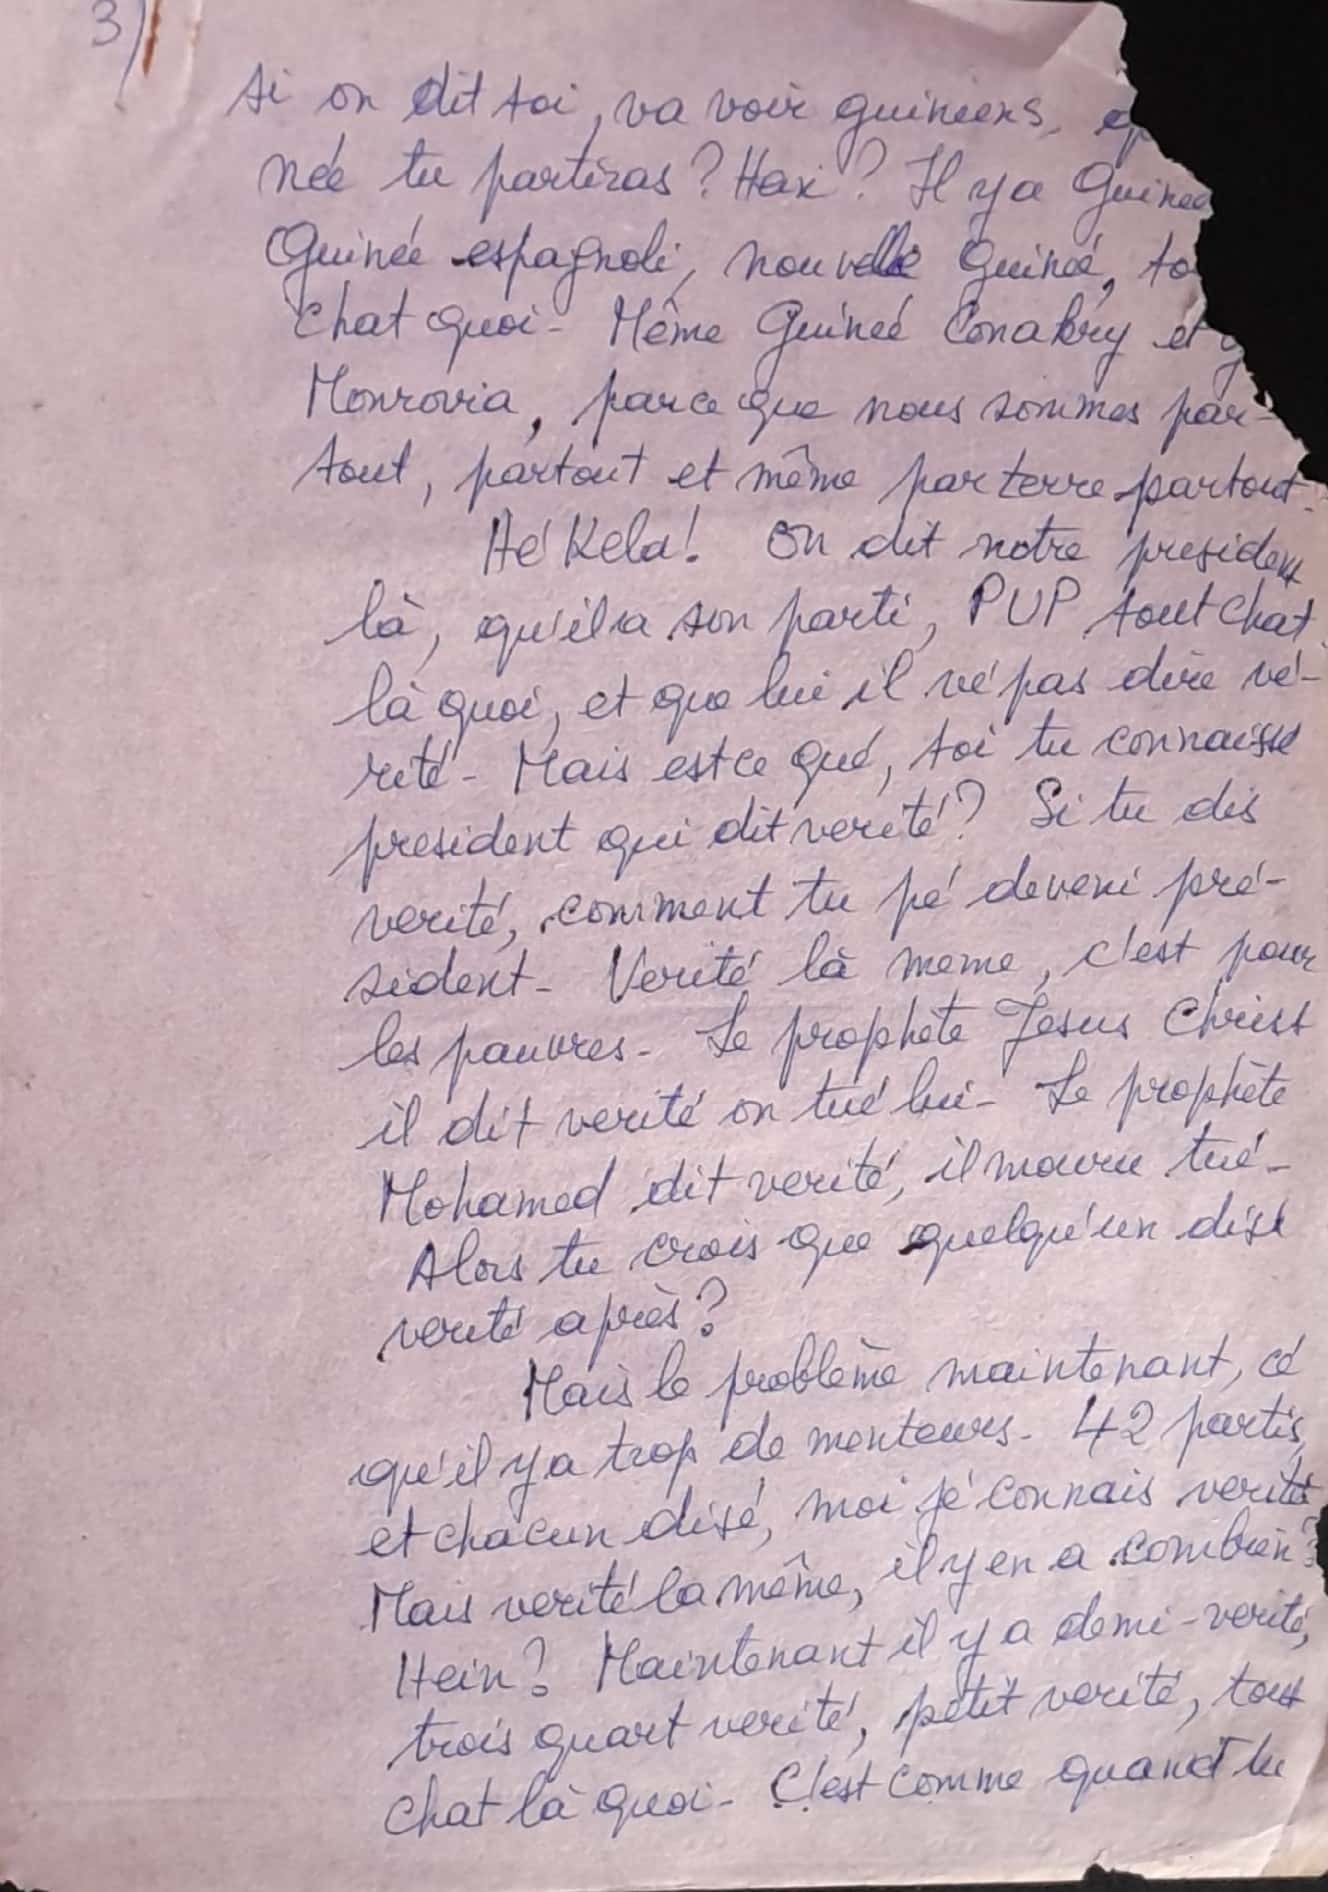 3)
si on dit toi, va voir guineens,
née tu partiras? Hax? Il y a Guinee
Guinée espagnole, nouvelle Guinée, to
chat quoi - Même Guineé Conakry et g
Monrovia, parce que nous sommes par-
tout, partout et même par terre partout.
Hé Kela! On dit notre president
là, qu'il a son parti, PUP tout chat
là quoi, et que lui il vé pas dire vé-
rité - Mais est ce qué, toi tu connaisse
president qui dit verité? Si tu dis
verité, comment tu pé deveni pré-
sident - Verité là meme, c'est pour
les pauvres - Le prophète Jesus Christ
il dit verité on tué lui - Le prophète
Mohamed dit verité, il mouru tué -
Alors tu crois que quelqu'un disé
verité après?
Mais le problème maintenant, cé
qu'il y a trop de menteurs - 42 partis,
et chacun disé, moi jé connais verité
Mais verité la même, il y en a combien?
Hein? Maintenant il y a demi-verité,
trois quart verité, petit verité, tout
chat là quoi - C'est comme quand tu